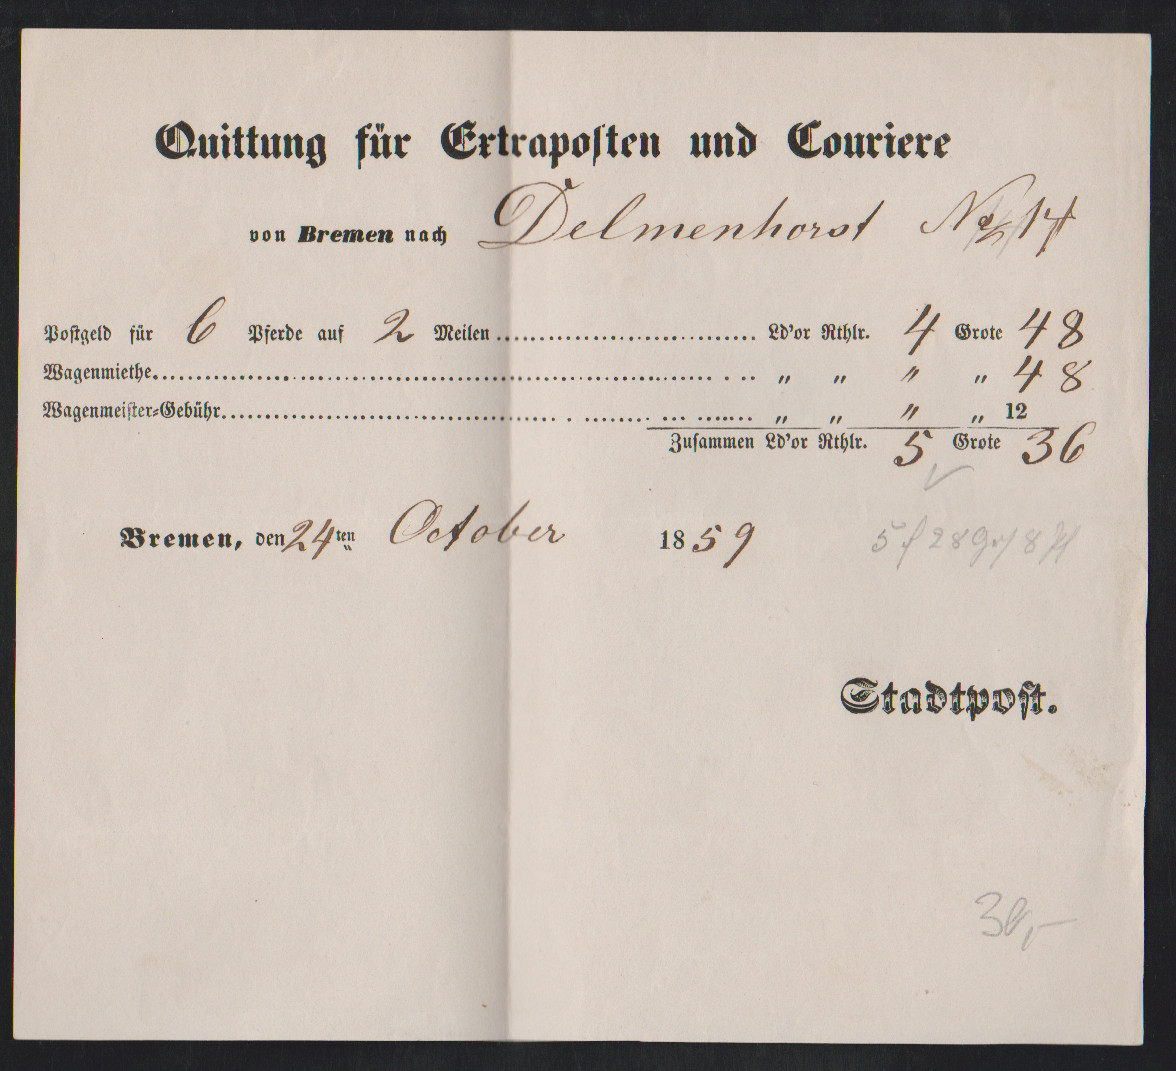 Quittung für Extraposten und Couriere
von Bremen nach Delmenhorst No 14
Postgeld für 6 Pferde auf 2 Meilen ............................ Ld'or Rthlr. 4 Grote 48
Wagenmiethe............................ „ „ „ „ 48
Wagenmeister-Gebühr............................ „ „ „ „ 12
Zusammen Ld'or Rthlr. 5 Grote 36
Bremen, den 24ten October 1859
5 28 8
Stadtpost.
30,-